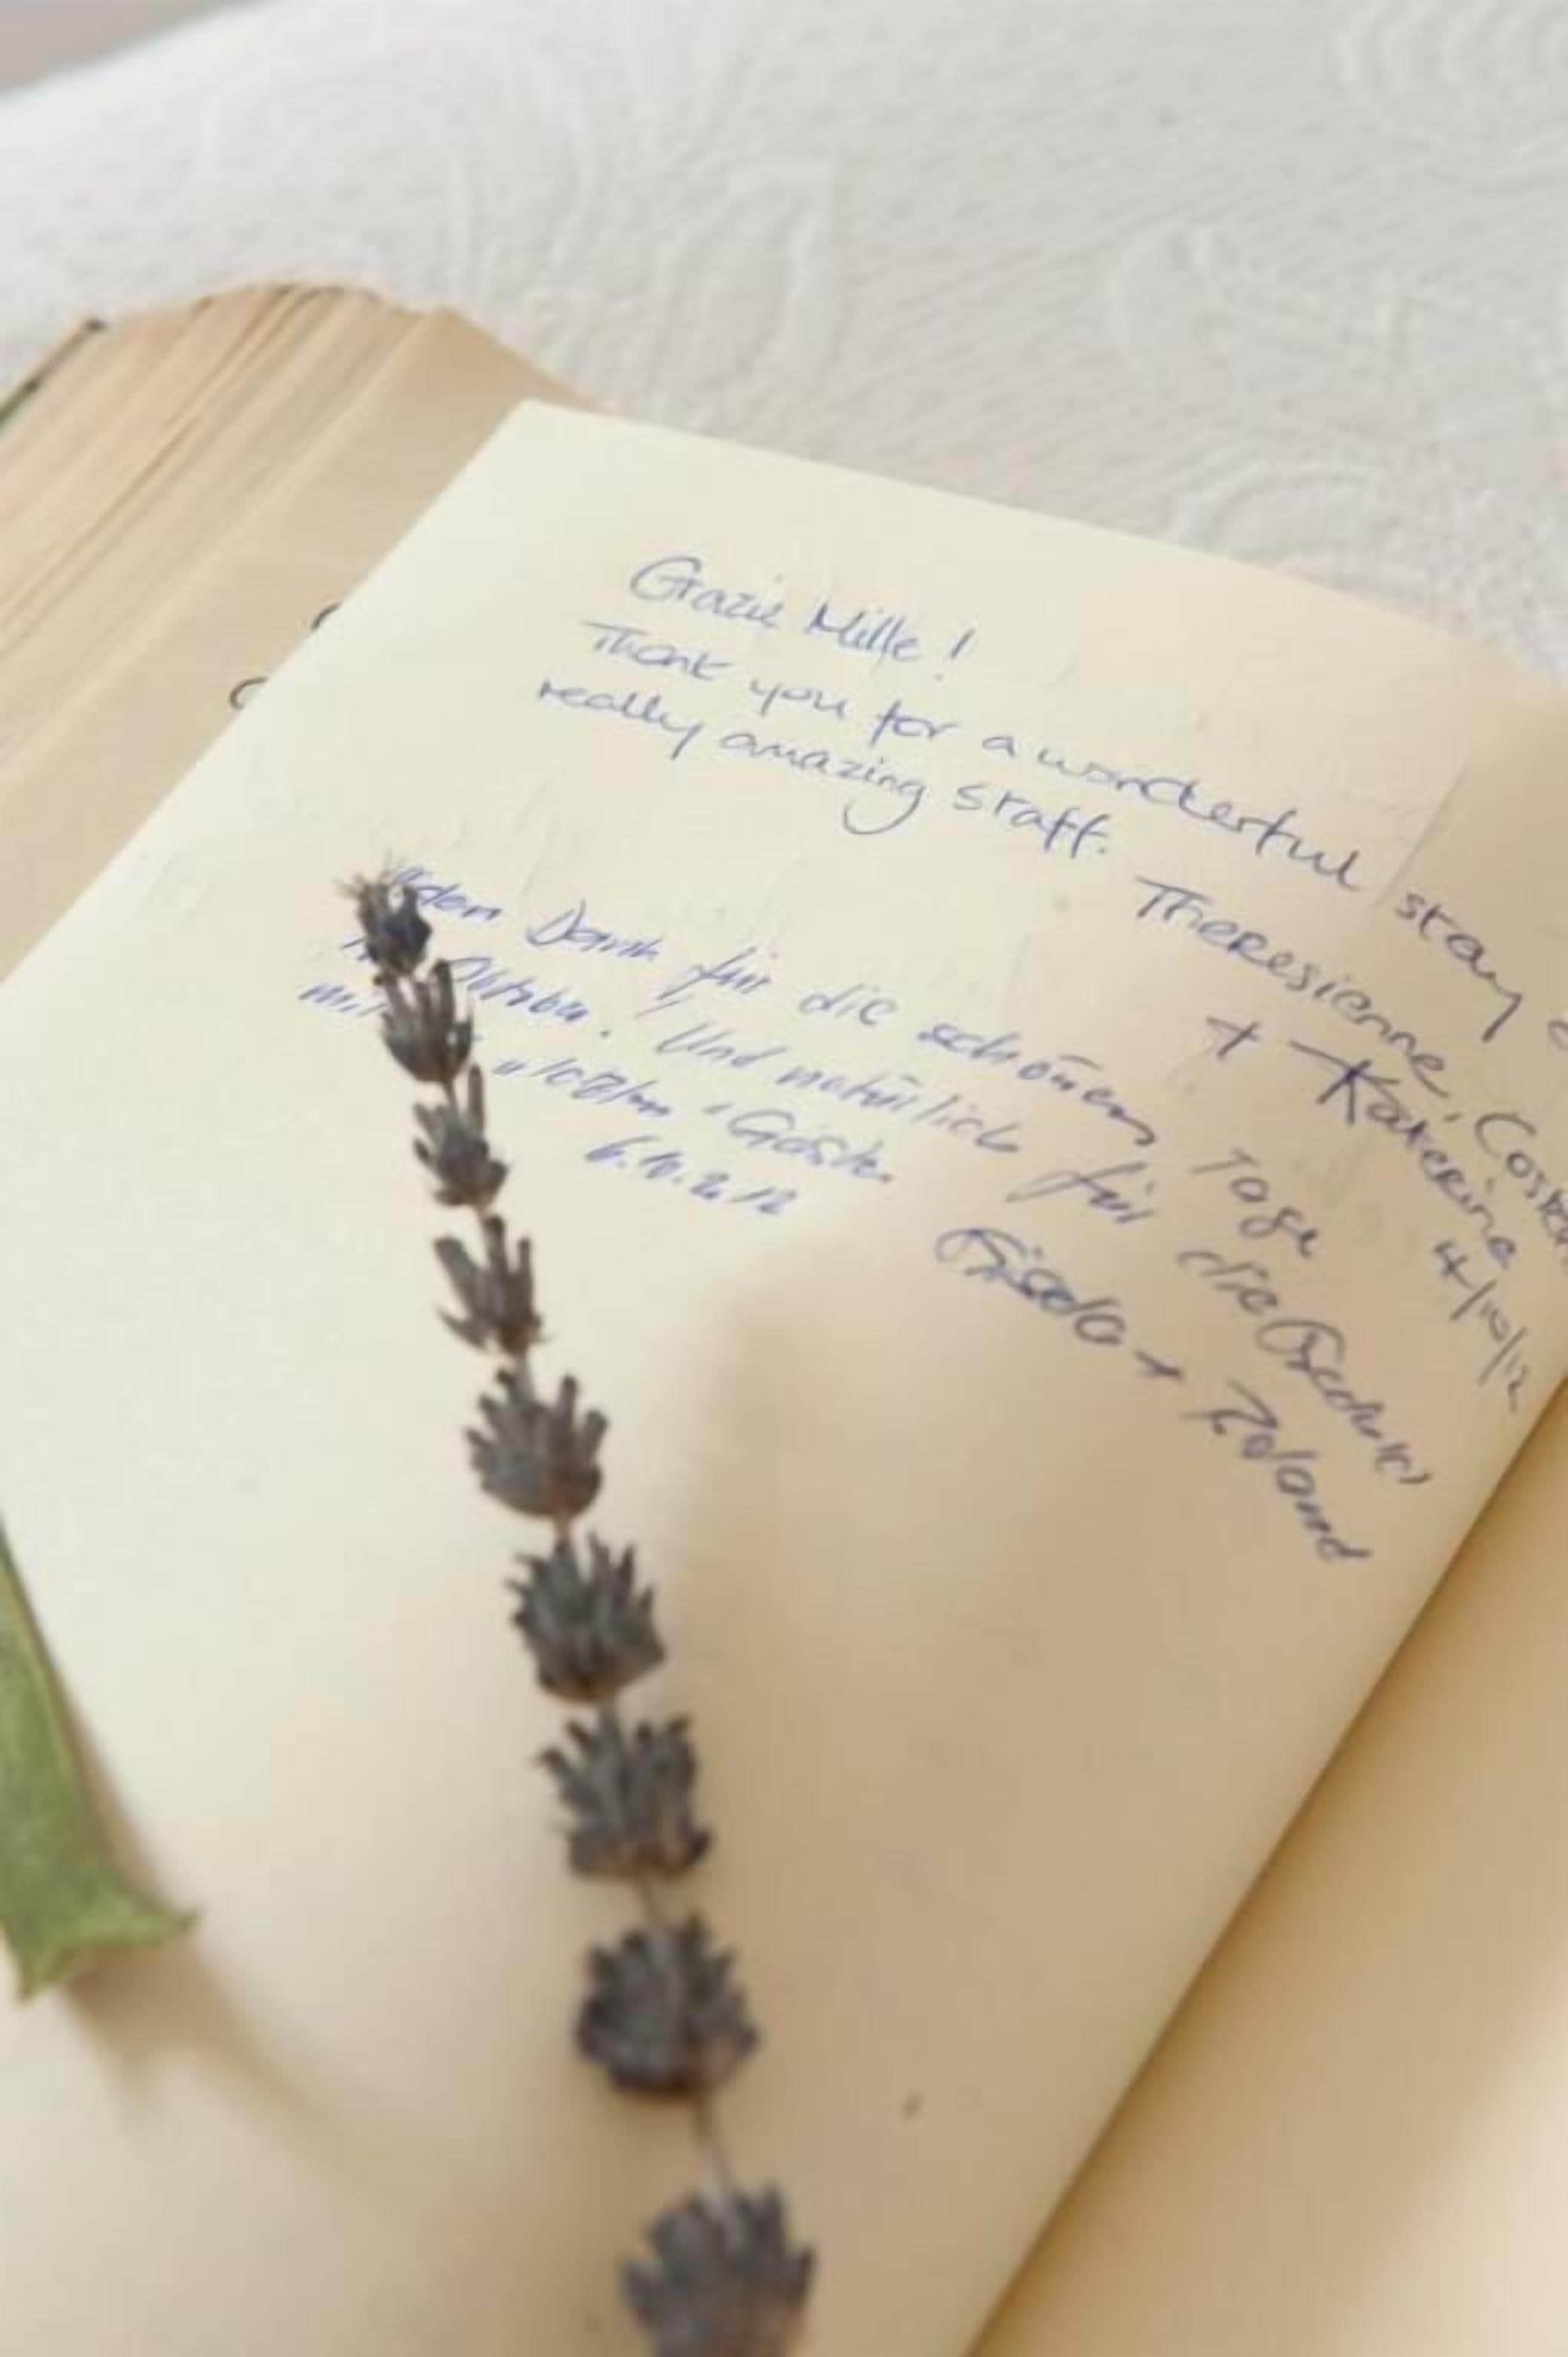 Grazie Mille !
Thank you for a wonderful stay
really amazing staff.
Theresienne,
+ Katerine
4/10/12
Dank für die schönen Tage
Oktober. Und natürlich für die
mit Gäste.
6.10.2012
Gisela + Roland